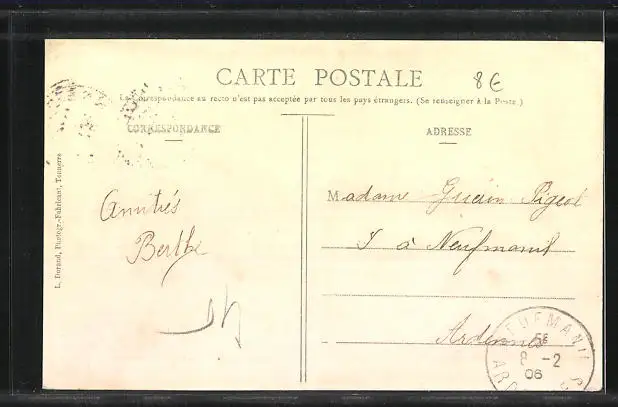 CARTE POSTALE
8€
La Correspondance au recto n'est pas acceptée par tous les pays étrangers. (Se renseigner à la Poste.)
CORRESPONDANCE
Amitiés
Berthe
L. Durand, Photogr.-Fabricant, Tonnerre
ADRESSE
Madame Guérin Pigeol
à Neufmanil
Ardennes
NEUFMANIL
8 -2
06